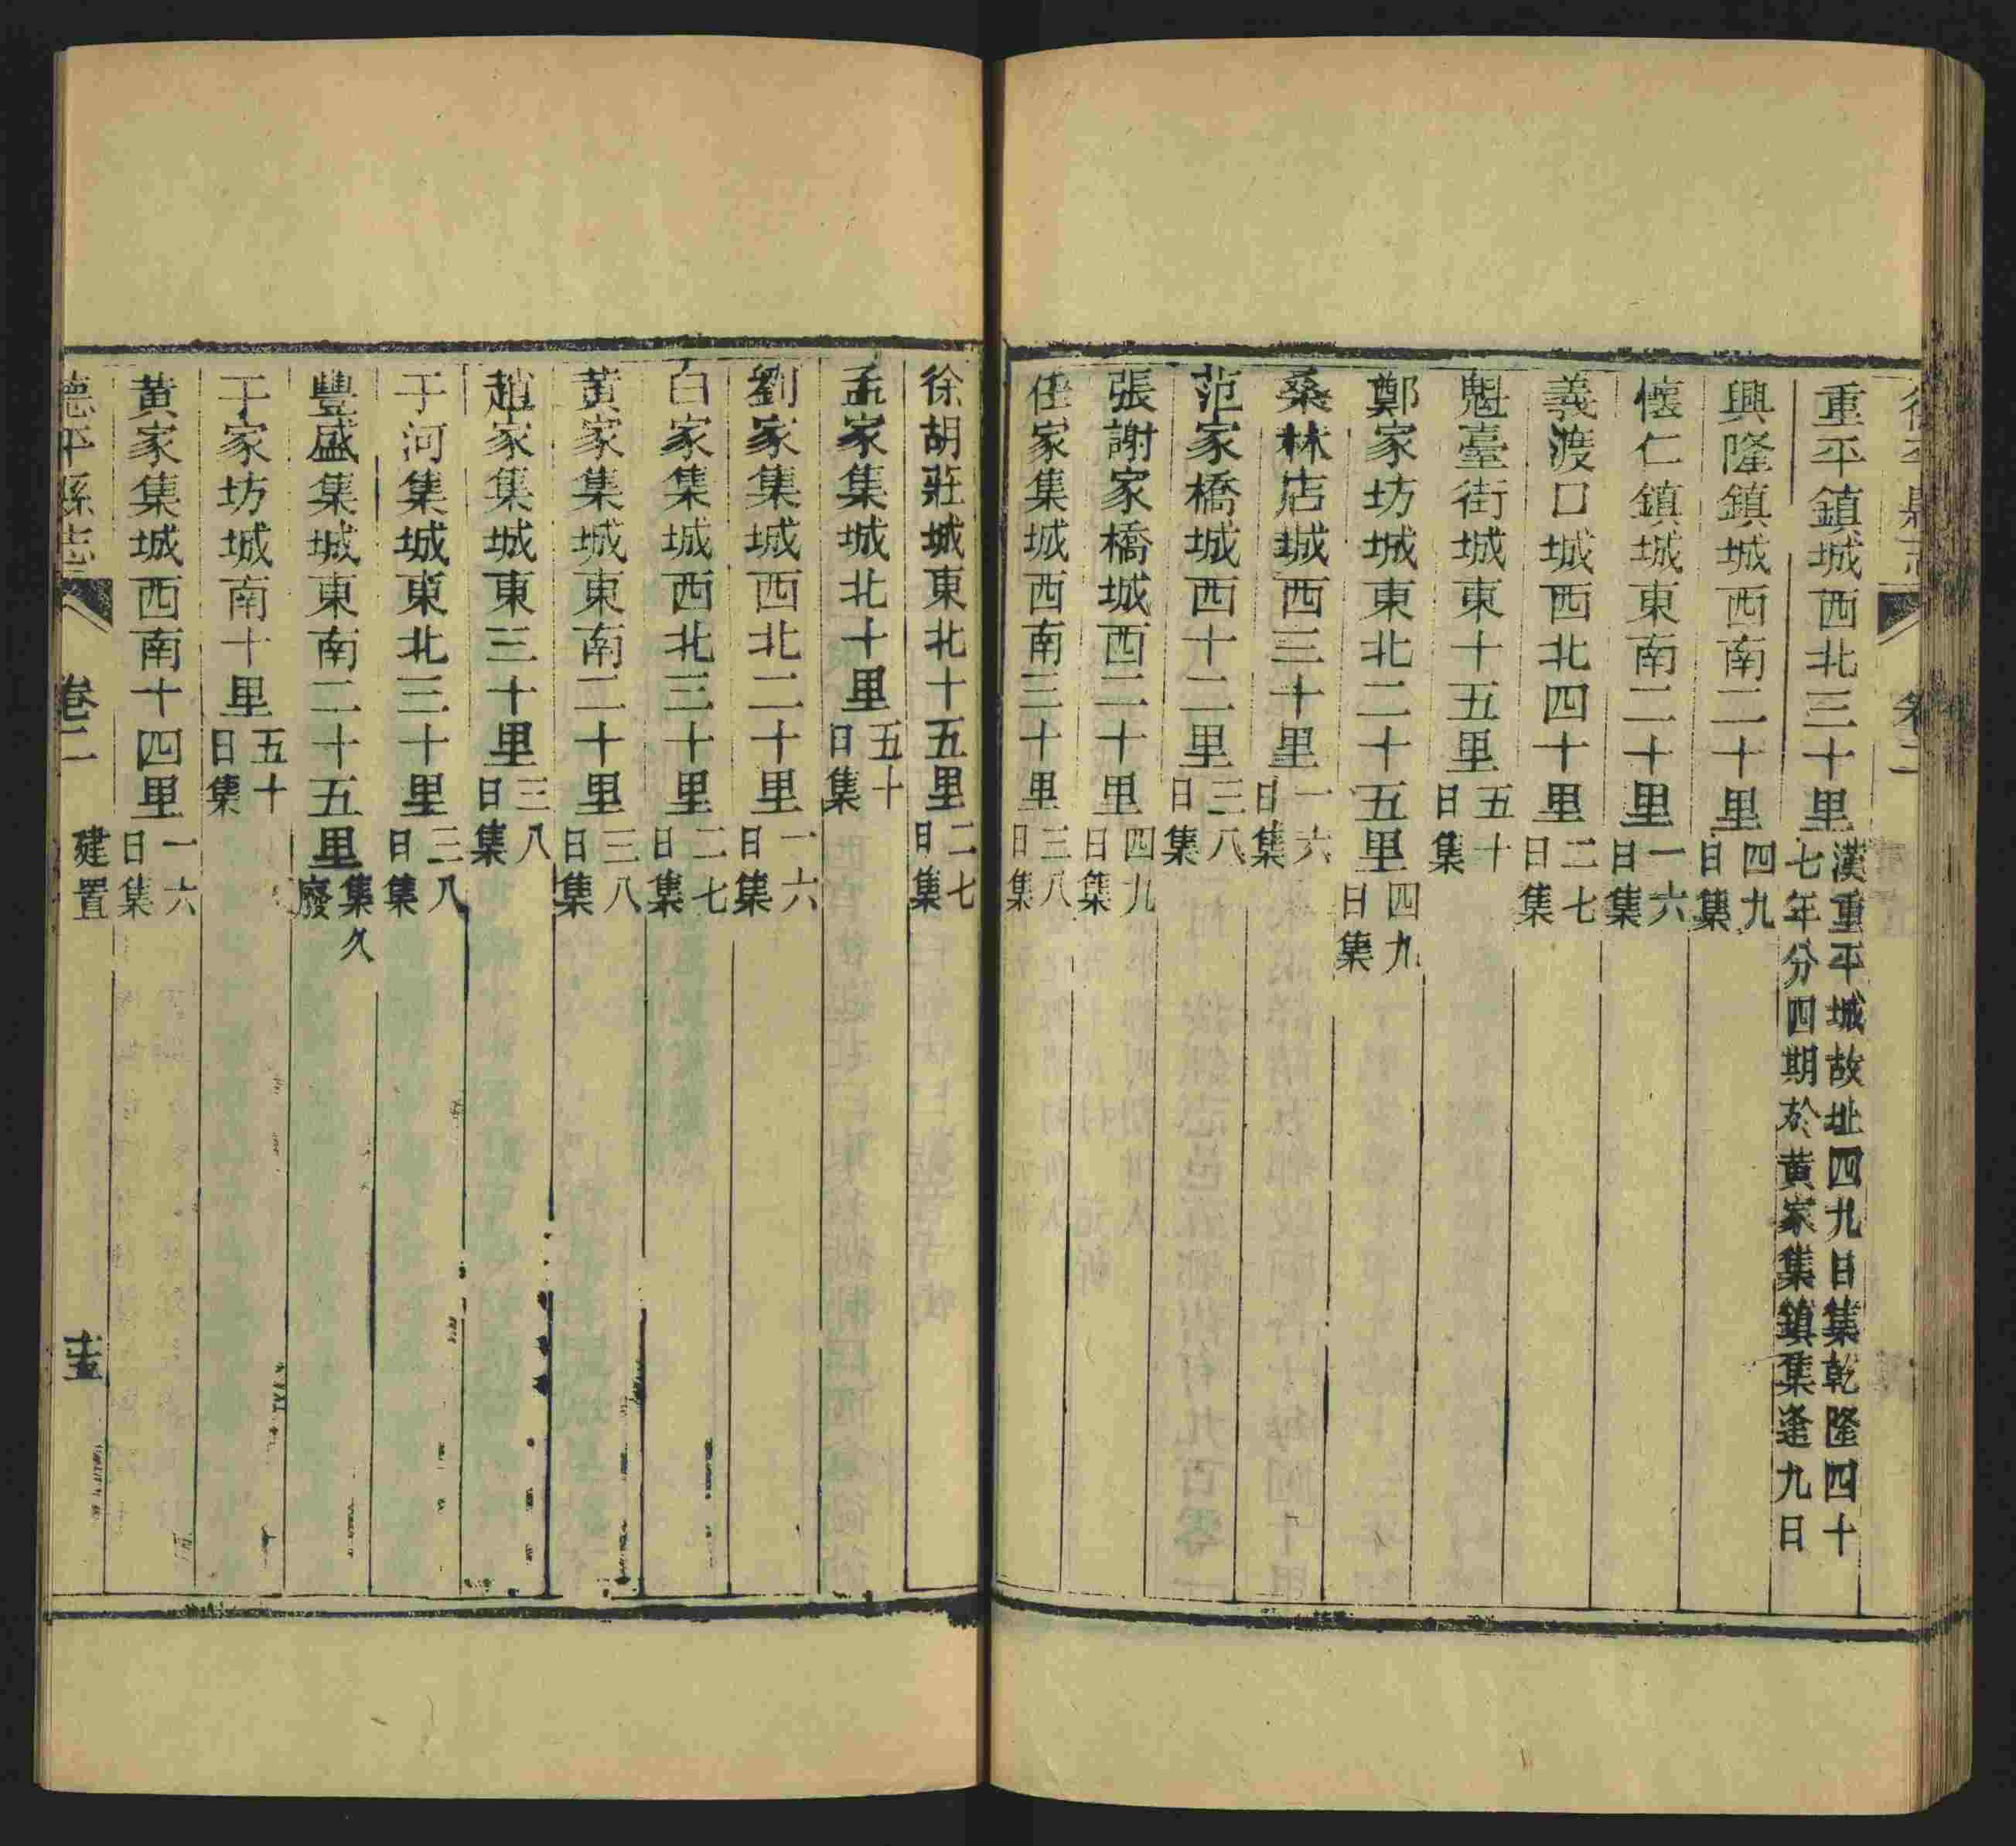 德平縣志
卷二
重平鎮城西北三十里漢重平城故址四九日集乾隆四十
七年分四期於黄家集鎮集逢九日
興隆鎮城西南二十里四九日集
懷仁鎮城東南二十里一六日集
義渡口城西北四十里二七日集
魁臺街城東十五里五十日集
鄭家坊城東北二十五里四九日集
桑林店城西三十里一六日集
范家橋城西十二里三八日集
張謝家橋城西二十里四九日集
任家集城西南三十里三八日集
徐胡莊城東北十五里二七日集
孟家集城北十里五十日集
劉家集城西北二十里一六日集
白家集城西北三十里二七日集
黄家集城東南二十里三八日集
趙家集城東三十里三八日集
于河集城東北三十里三八日集
豐盛集城東南二十五里集久廢
于家坊城南十里五十日集
黄家集城西南十四里一六日集
德平縣志
卷二
建置
十五